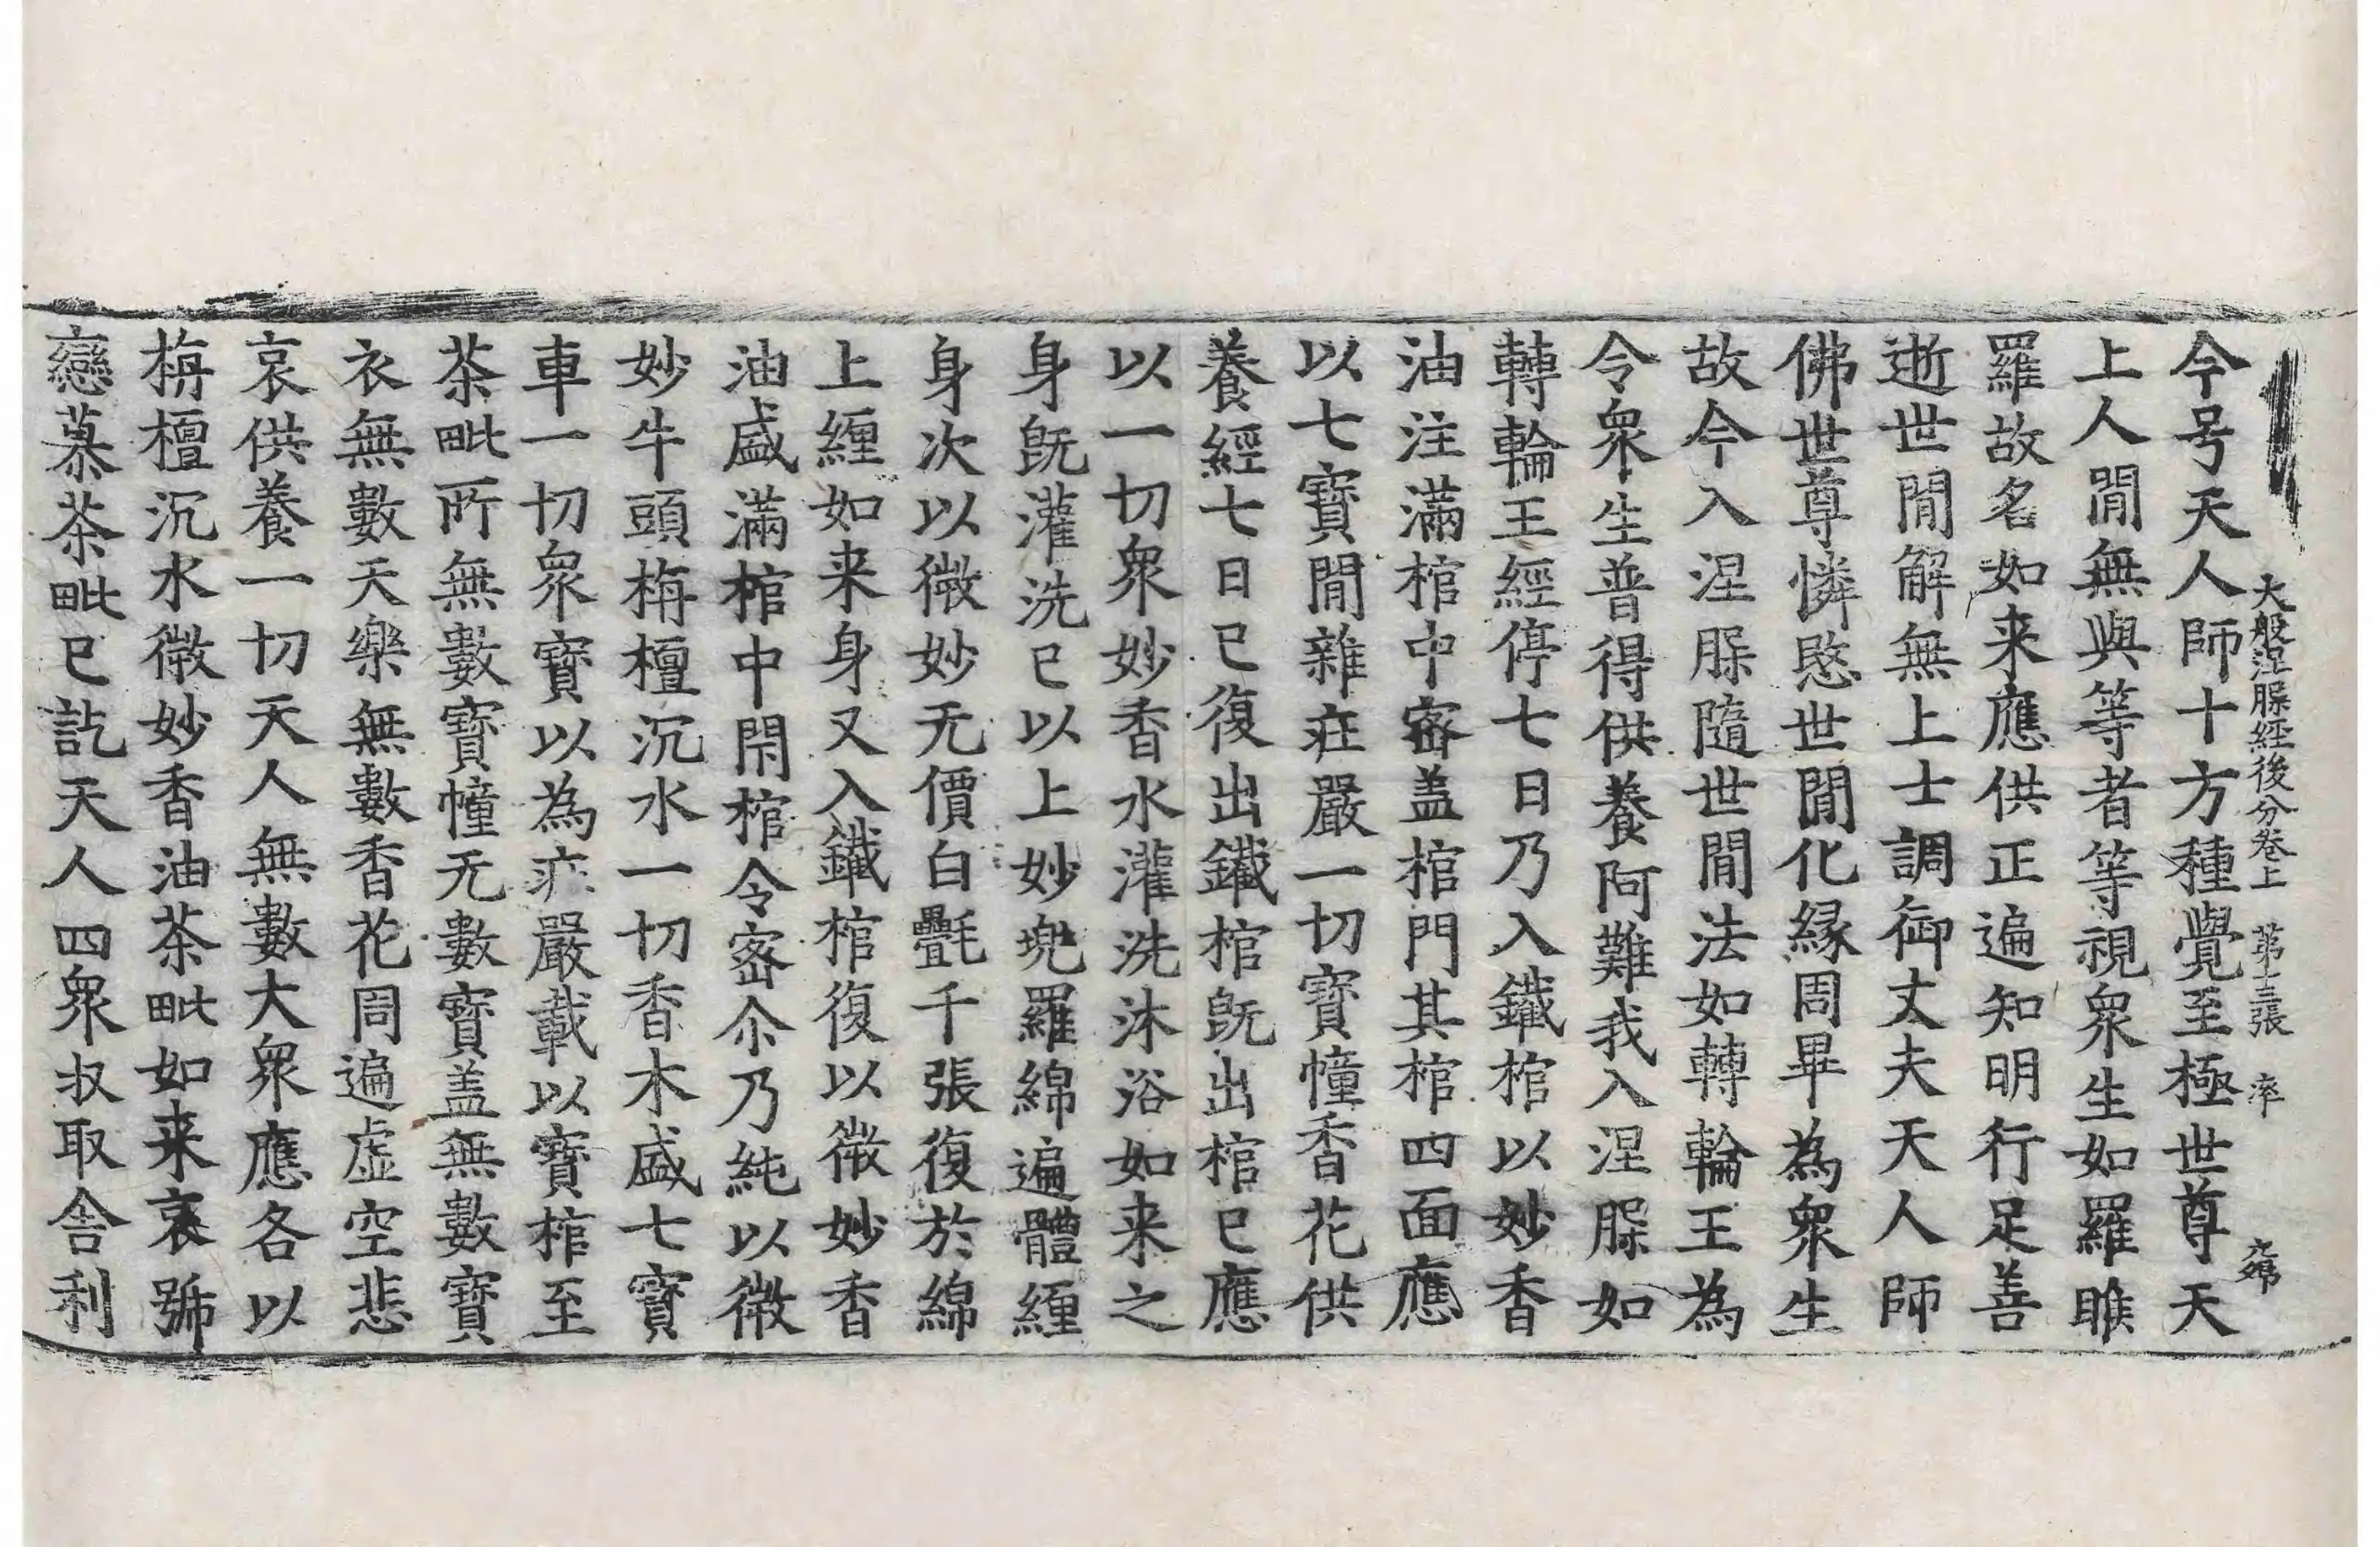 大般涅槃經後分卷上　第十三張　率
今号天人師十方種覺至極世尊天
上人閒無與等者等視衆生如羅睺
羅故名如来應供正遍知明行足善
逝世閒解無上士調御丈夫天人師
佛世尊憐愍世閒化縁周畢為衆生
故今入涅槃隨世閒法如轉輪王為
令衆生普得供養阿難我入涅槃如
轉輪王經停七日乃入鐵棺以妙香
油注滿棺中密盖棺門其棺四面應
以七寶閒雜莊嚴一切寶幢香花供
養經七日已復出鐵棺旣出棺已應
以一切衆妙香水灌洗沐浴如来之
身旣灌洗已以上妙兜羅綿遍體纏
身次以微妙无價白㲲千張復於綿
上纏如来身又入鐵棺復以微妙香
油盛滿棺中閇棺令密尒乃純以微
妙牛頭栴檀沉水一切香木盛七寶
車一切衆寶以為莊嚴載以寶棺至
茶毗所無數寶幢无數寶盖無數寶
衣無數天樂無數香花周遍虚空悲
哀供養一切天人無數大衆應各以
栴檀沉水微妙香油茶毗如来哀號
戀慕茶毗已訖天人四衆収取舎利